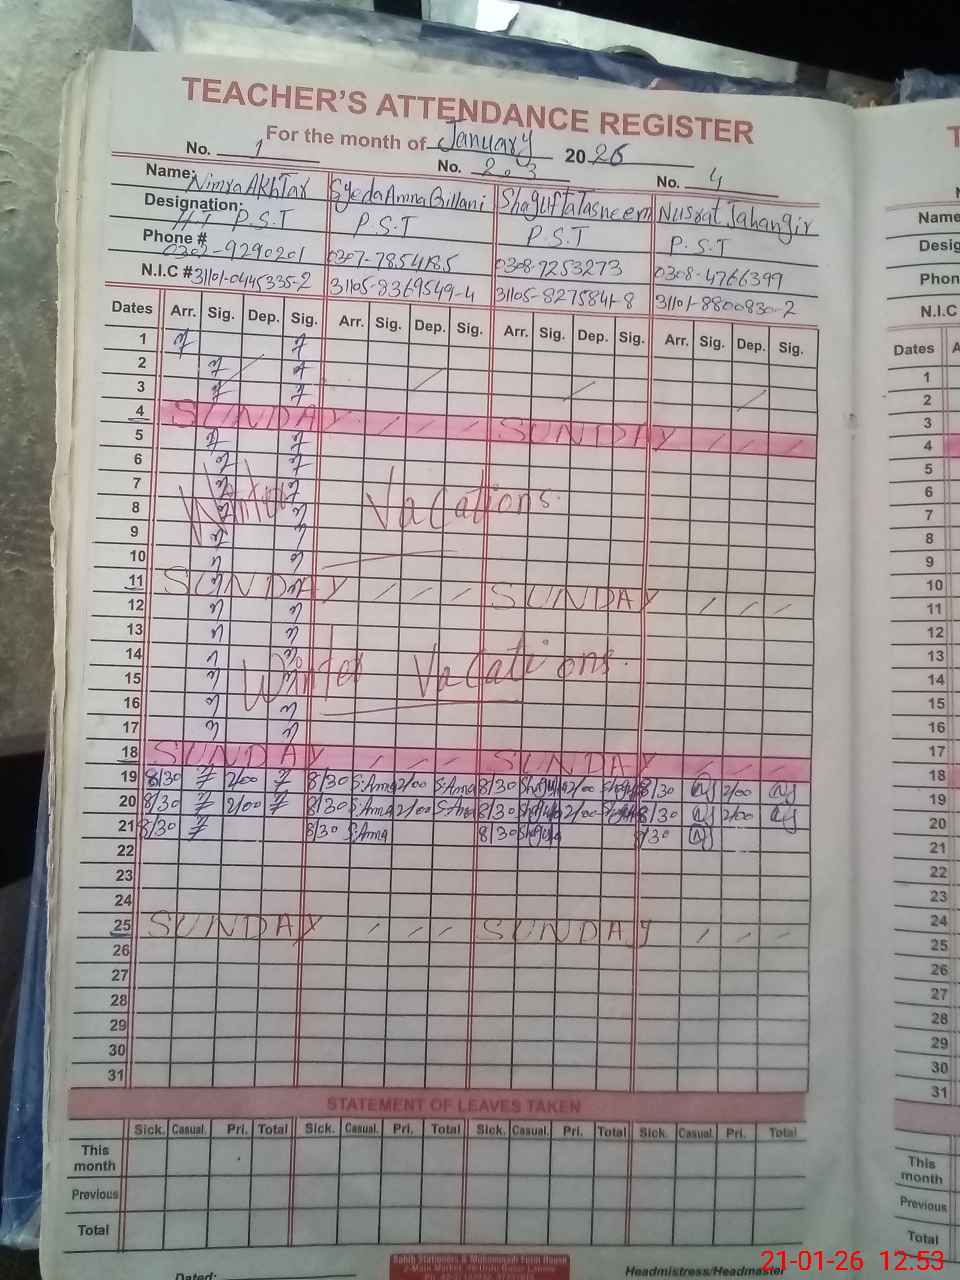 TEACHER'S ATTENDANCE REGISTER
For the month of January 2026
No. 1 No. 2.3 No. 4
Name: Nimra Akhtar Syeda Amna Gillani Shagufta Tasneem Nusrat Jahangir
Designation: HT P.S.T P.S.T P.S.T P.S.T
Phone # 0302-9290201 0307-7854185 0308-7253273 0308-4766399
N.I.C # 31101-0445335-2 31105-8369549-4 31105-8275841-8 31101-8800830-2
Dates Arr. Sig. Dep. Sig. Arr. Sig. Dep. Sig. Arr. Sig. Dep. Sig. Arr. Sig. Dep. Sig.
1
2
3
4 SUNDAY SUNDAY
5
6
7
8 Winter Vacations.
9
10
11 SUNDAY SUNDAY
12
13
14
15 Winter Vacations.
16
17
18 SUNDAY SUNDAY
19 8/30 2/00 8/30 S.Amna 2/00 S.Amna 8/30 2/00 8/30 2/00
20 8/30 2/00 8/30 S.Amna 2/00 S.Amna 8/30 2/00 8/30 2/00
21 8/30 8/30 S.Amna 8/30 8/30
22
23
24
25 SUNDAY SUNDAY
26
27
28
29
30
31
STATEMENT OF LEAVES TAKEN
Sick. Casual. Pri. Total Sick. Casual. Pri. Total Sick. Casual. Pri. Total Sick. Casual. Pri. Total
This month
Previous
Total
Dated: Headmistress/Headmaster
Name
Desig
Phon
N.I.C
Dates A
1
2
3
4
5
6
7
8
9
10
11
12
13
14
15
16
17
18
19
20
21
22
23
24
25
26
27
28
29
30
31
This month
Previous
Total
21-01-26 12.53